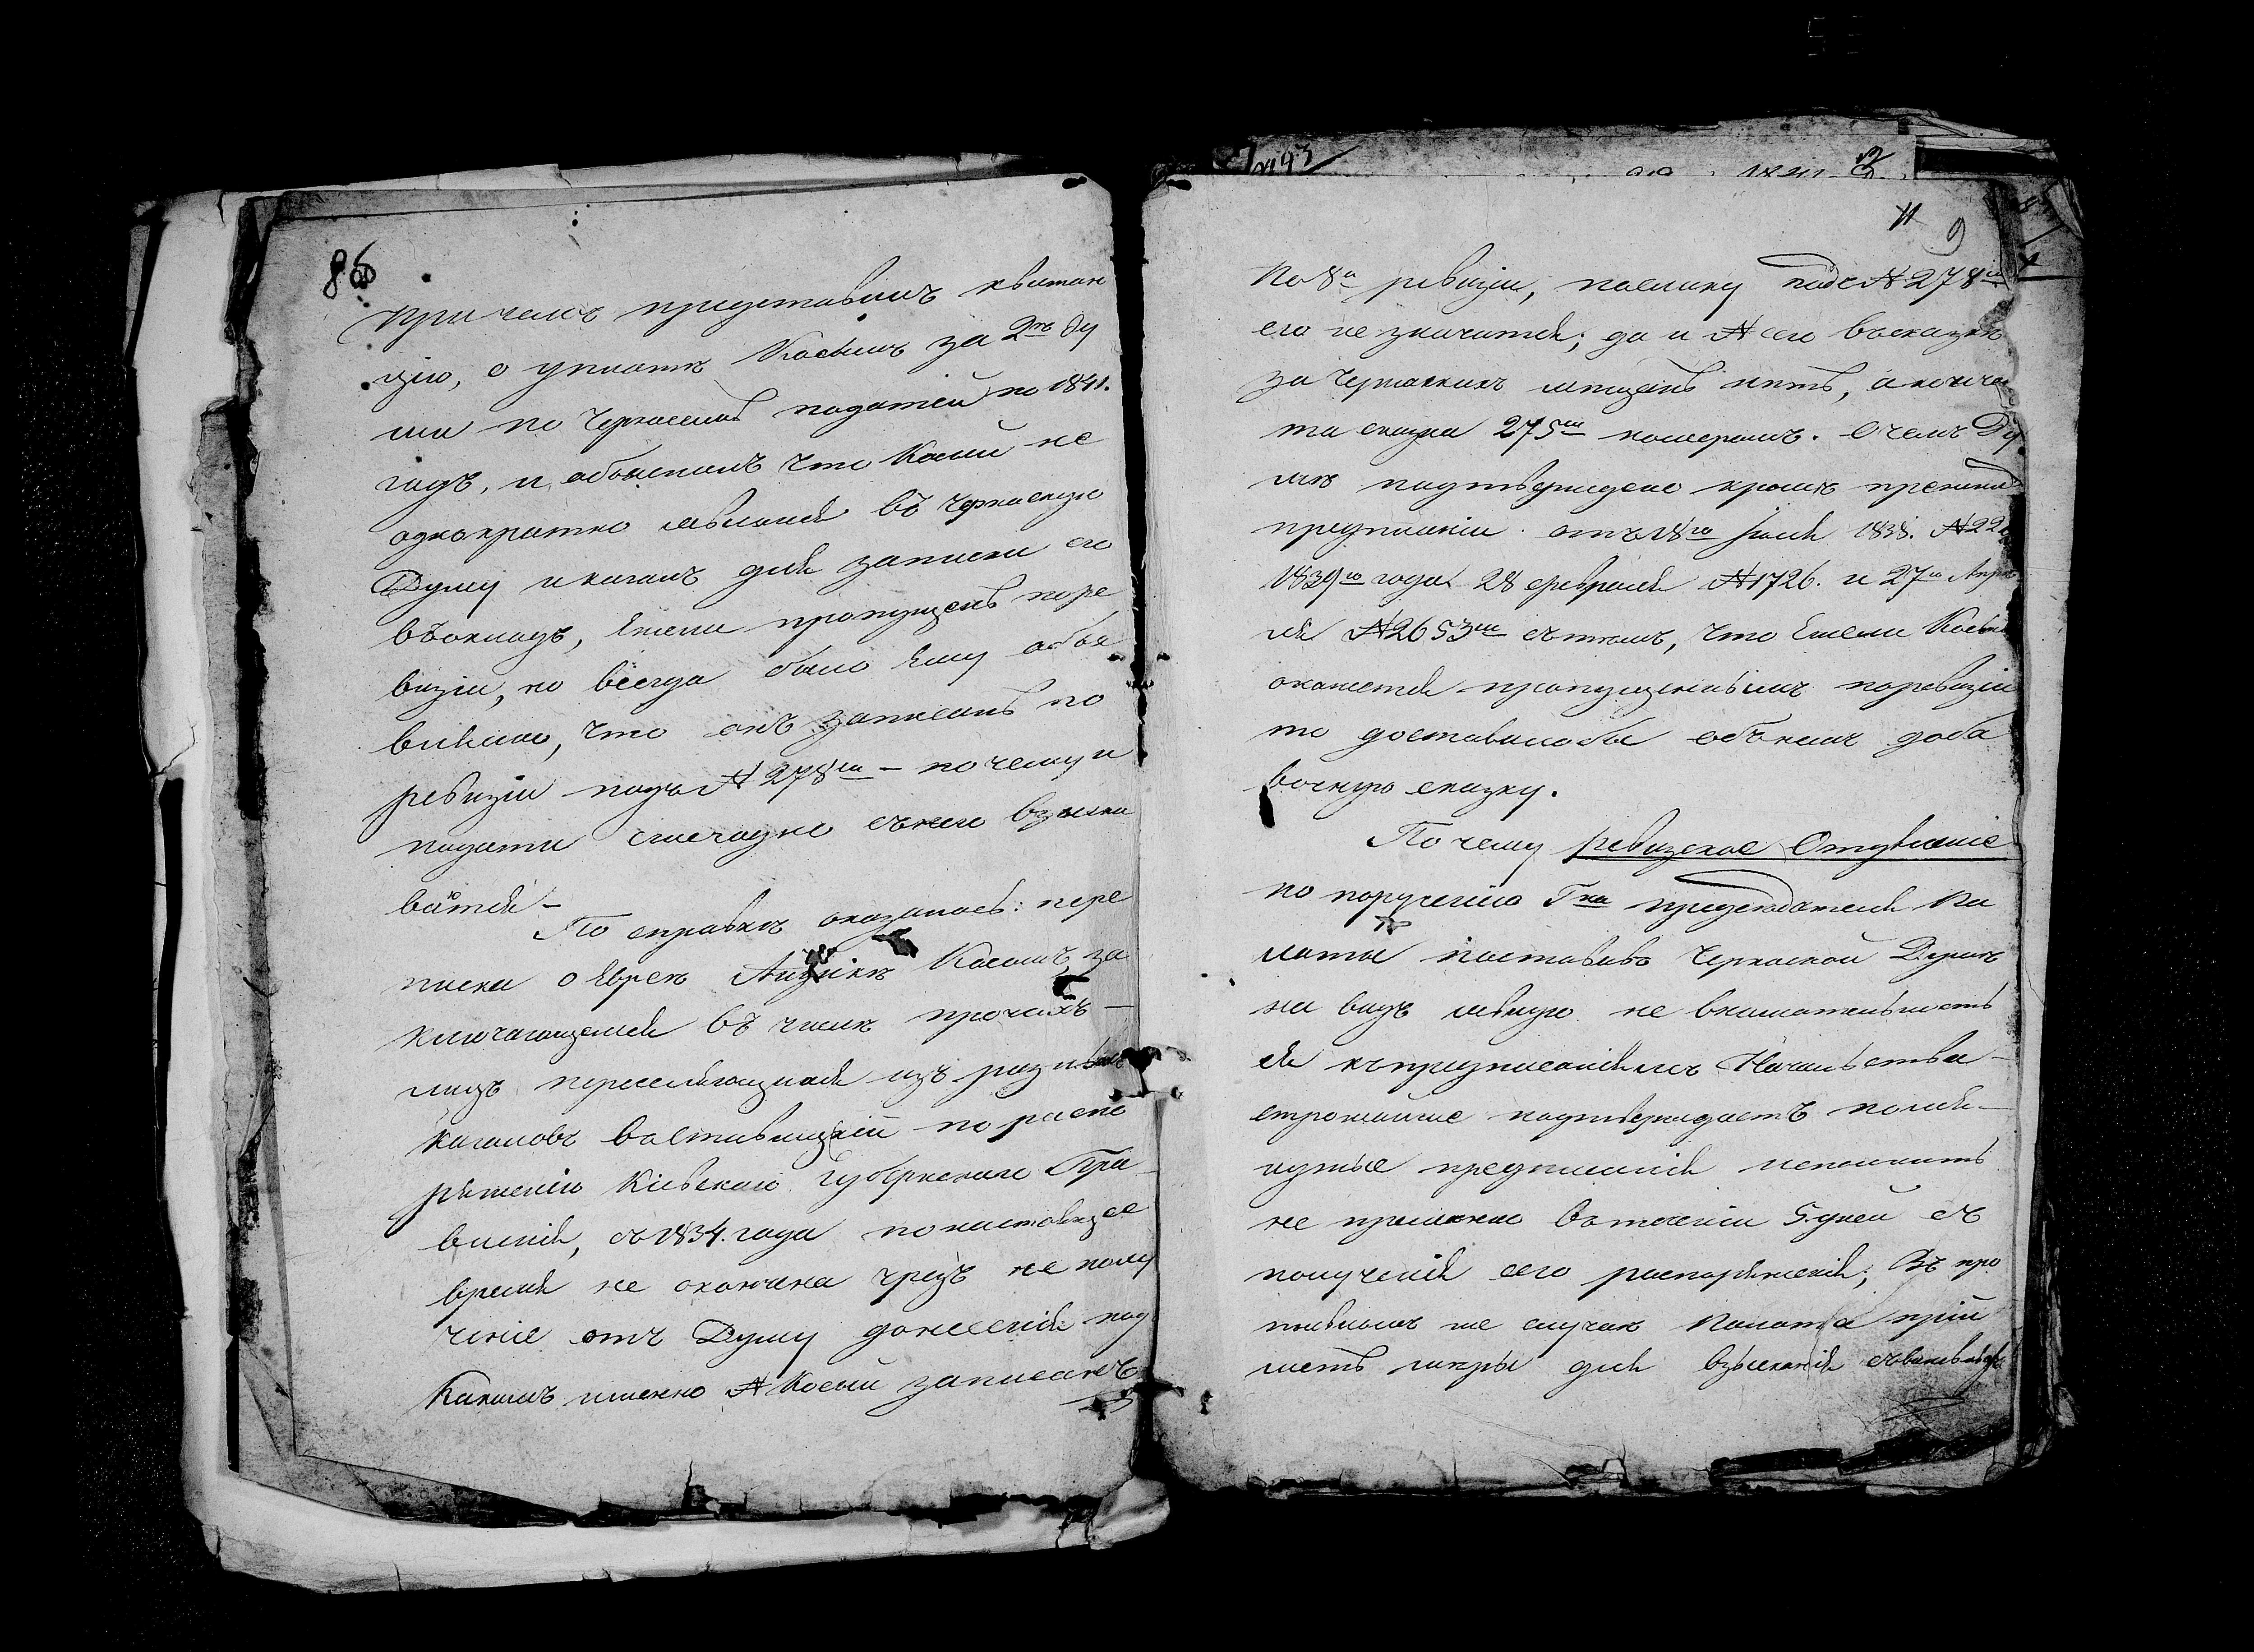 86
при чемъ представилъ квитан
цію, о уплатѣ Косымъ за 2ѣ ду
ши по Черкасамъ податей по 1841.
годъ, и объяснилъ что Косый не
однократно являлся въ Черкаскую
Думу и кагалъ для записки его
въ окладъ, ежели пропущенъ по ре
визіи, но всегда было ему объя
вляемо, что онъ записанъ по
ревизіи подъ № 278мъ – по чему и
подати ежегодно съ него взыски
ваются –
По справкѣ оказалось: пере
писка о Евреѣ Айзикѣ Косомъ, за
ключающемся въ числѣ прочихъ –
лицъ переселяющихся изъ разныхъ
кагаловъ по распо
ряженію Кіевскаго Губернскаго Пра
вленія, съ 1834. года по настоящее
время не окончена чрезъ не полу
ченіе отъ Думы донесенія под
Какимъ именно № Косый записанъ
11
9
По 8й ревизіи, поелику подъ № 278мъ
его не значится; да и № сего въ сказкѣ
за Черкаскихъ мѣщанъ нѣтъ, а конче
та сказка 275мъ номеромъ. О чемъ Ду
мѣ подтверждено кромѣ прежнихъ
предписаній отъ 18го Іюля 1838.
1839го года 28 февраля № 1726. и 27го Апрѣ
ля № 2653мъ съ тѣмъ, что Ежели Косый
окажется пропущеннымъ по ревизіи
то доставила бы объ немъ доба
вочную сказку.
По чему ревизское Отдѣленіе
по порученію Гна предсѣдателя Па
латы поставивъ Черкаской Думѣ
на видъ явную не внимательность
ея къ предписаніямъ Начальства –
строжайше подтверждаетъ помя –
нутые предписанія исполнить
не премѣнно въ теченіи 5. дней съ
полученія сего распоряженія; Въ про
тивномъ же случаѣ Палата прій
метъ мѣры для взысканія съ виновныхъ